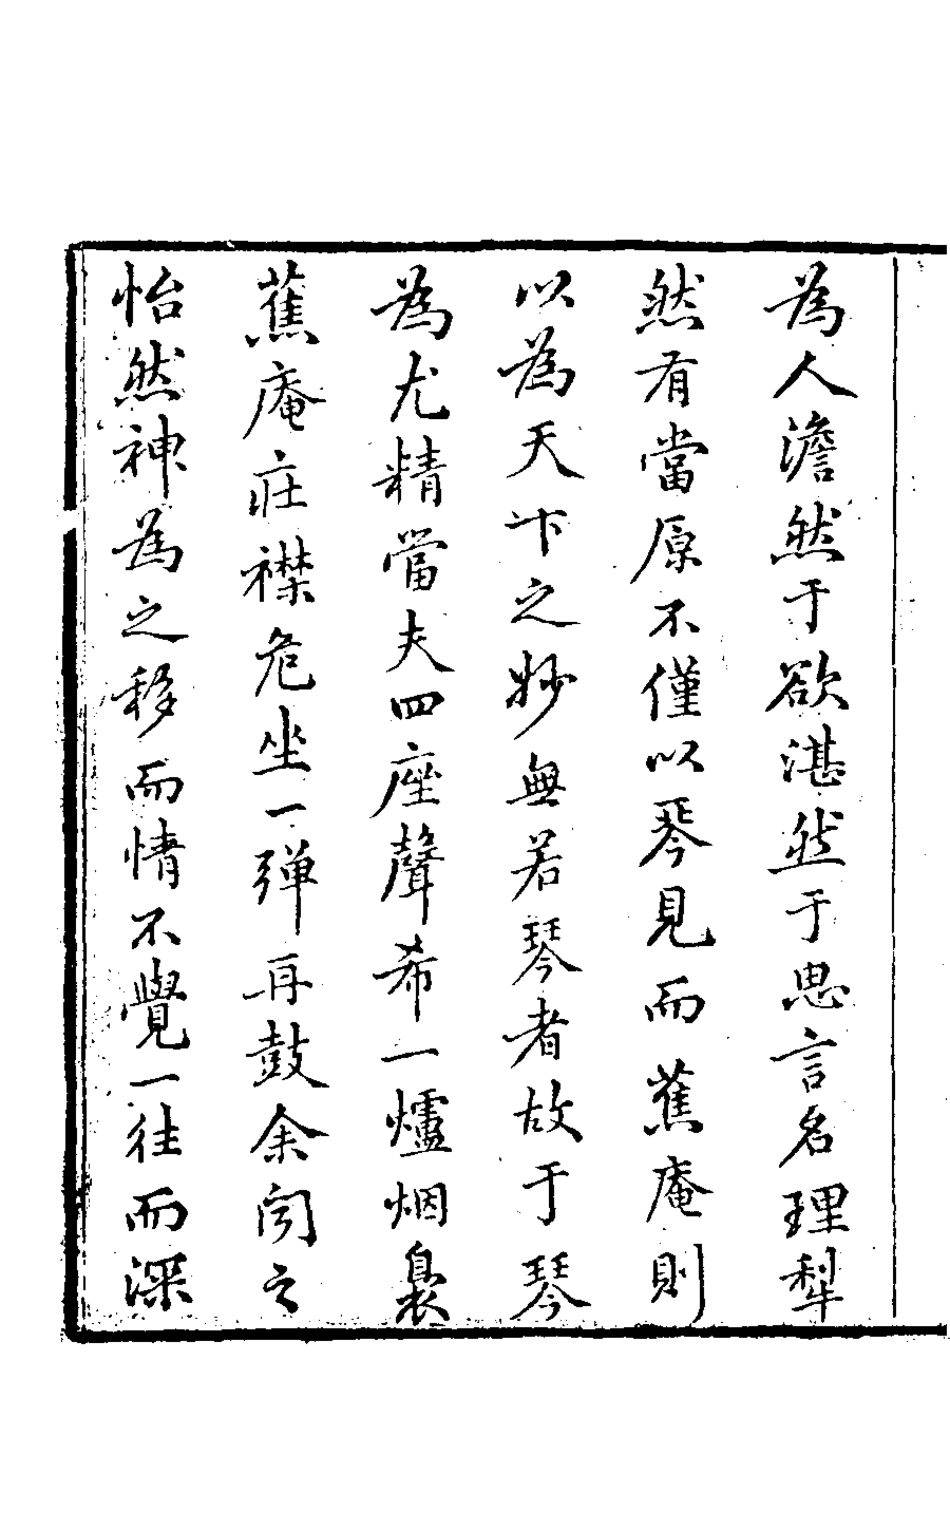 為人澹然于欲湛然于思言名理犁
然有當原不僅以琴見而蕉庵則
以為天下之妙無若琴者故于琴
為尤精當夫四座聲希一爐烟裊
蕉庵莊襟危坐一彈再鼓余闻之
怡然神為之移而情不覺一往而深